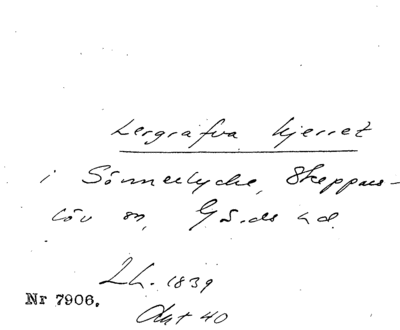 Lergrafva kjerret
i Sönnerlycke, Skeppars-
löv sn, Gärds hd.
Lh. 1839
Nr 7906.
Akt 40